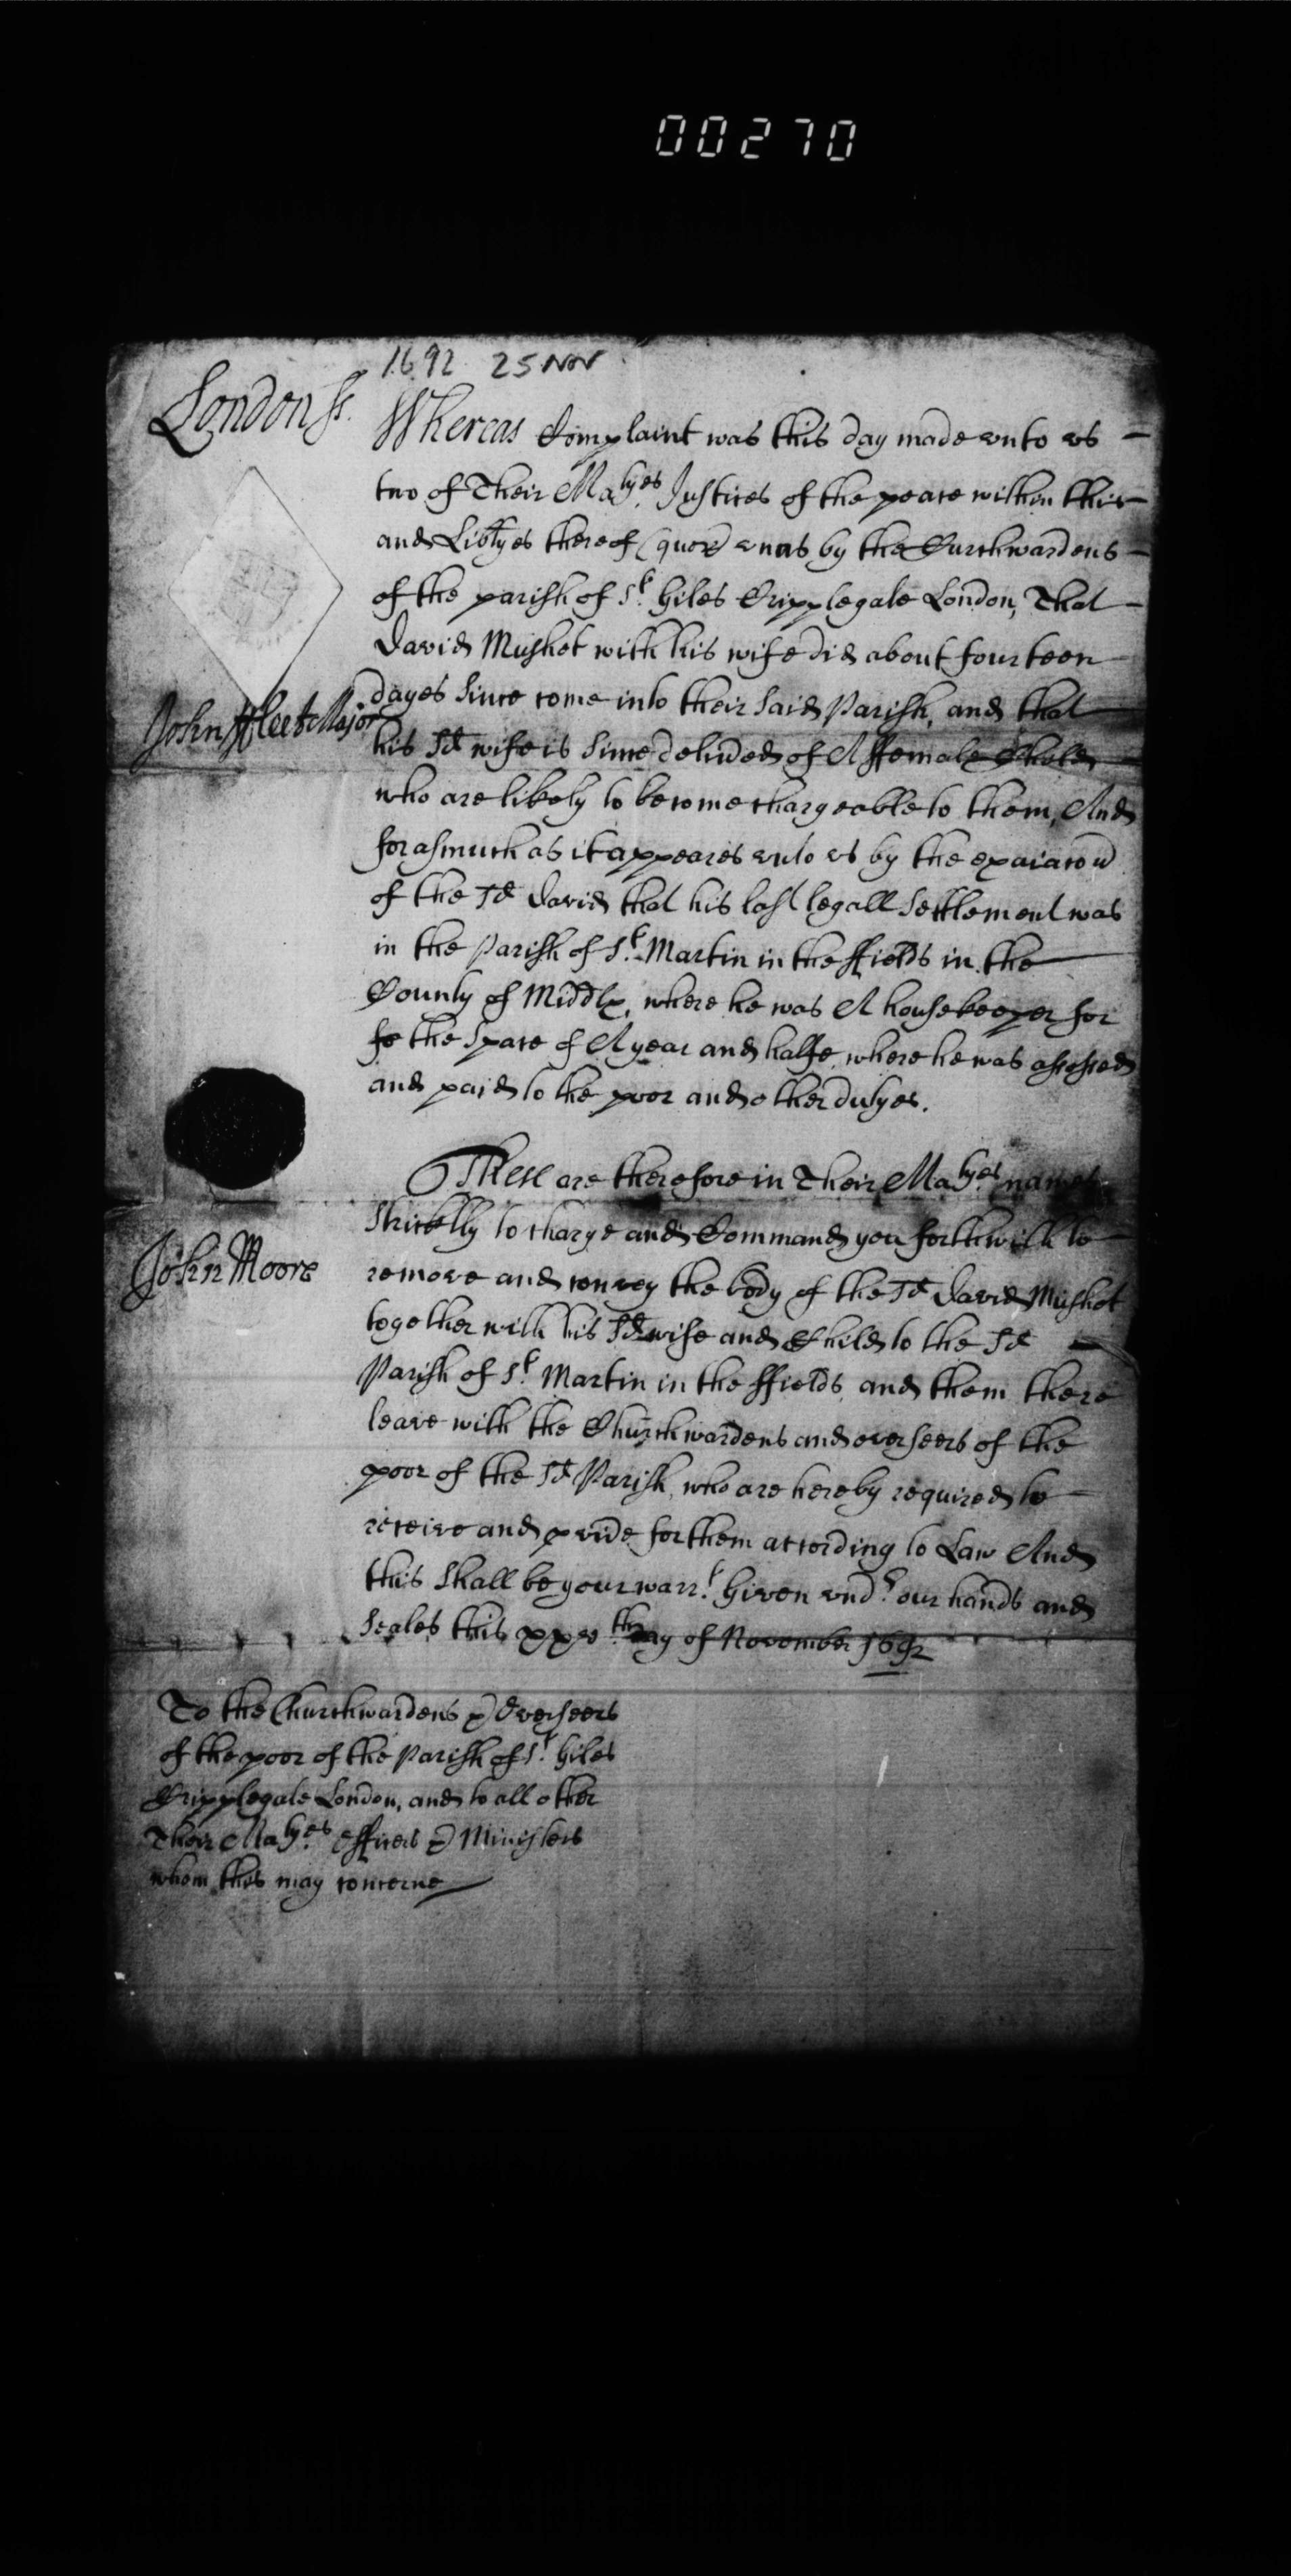 00270
1692 25 Nov
London ss.
Whereas Complaint was this day made vnto vs
two of Their Ma^tyes Justices of the peace within this
and Lib^tyes thereof (quor̄ vnus by the Curchwardens
of the parish of S^t. Giles Cripplegate London, That
David Mushet with his wife did about fourteen
dayes since come into their said Parish, and that
John ffleet Major
his s^d wife is since deliūed of A ffemale Child
who are likely to become chargeable to them, And
forasmuch as it appeares vnto vs by the
of the s^d David that his last legall settlement was
in the Parish of S^t. Martin in the ffields in the
County of Midd̄x, where he was A housekeeper for
fo the space of A year and halfe, where he was assessed
and paid to the poor and other dutyes.
These are therefore in Their Ma^tyes names
Strictly to charge and Command you forthwith to
John Moore
remove and convey the body of the s^d David Mushet
together with his s^d wife and Child to the s^d
Parish of S^t. Martin in the ffields, and them there
leave with the Churchwardens and overseers of the
poor of the s^d Parish, who are hereby required to
receive and pvide for them according to Law And
this shall be your warr^t. Given vnd^r. our hands and
Seales this xxv^th day of November 1692
To the Churchwardens & Overseers
of the poor of the Parish of S^t. Giles
Cripplegate London, and to all other
Their Ma^tyes Officers & Ministers
whom this may concerne